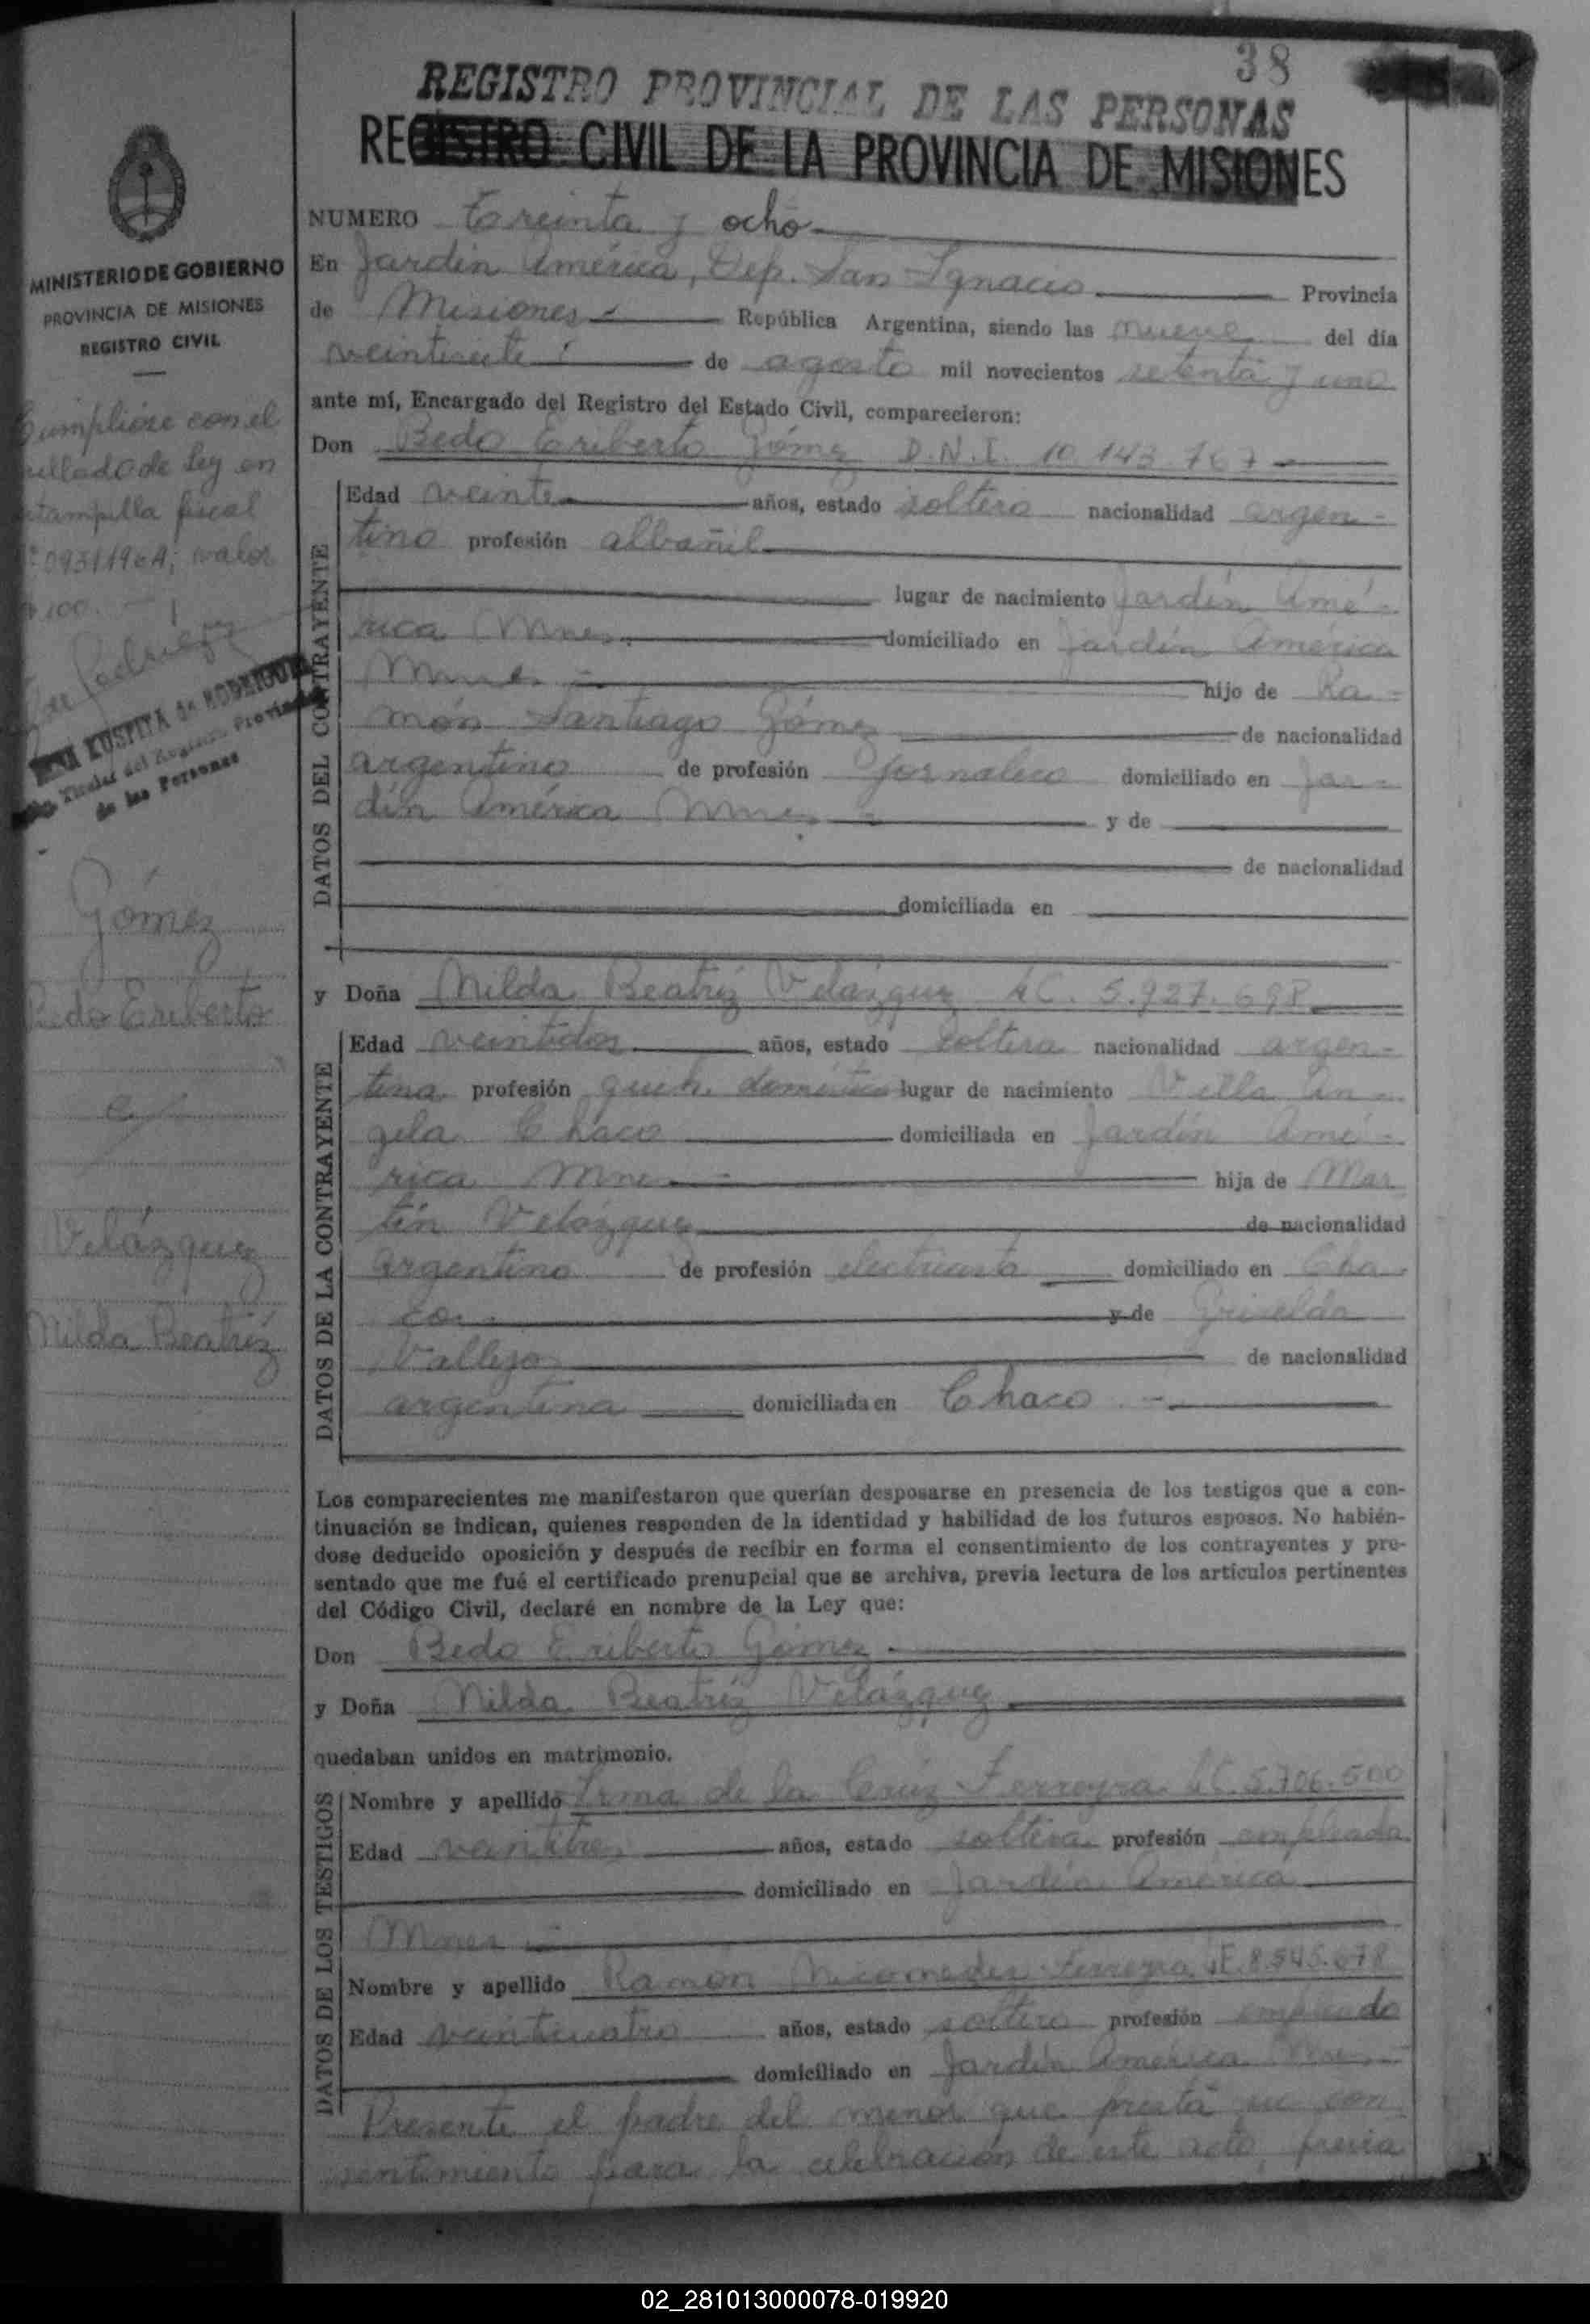 38
REGISTRO PROVINCIAL DE LAS PERSONAS
REGISTRO CIVIL DE LA PROVINCIA DE MISIONES
MINISTERIO DE GOBIERNO
PROVINCIA DE MISIONES
REGISTRO CIVIL
Cumplióse con el
sellado de ley en
estampilla fiscal
valor
100.-
de RODRIGUEZ
Titular del Registro Provincial
de las Personas
Gómez
Bedo Eriberto
c/
Velázquez
Nilda Beatríz
NUMERO Treinta y ocho
En Jardín América, Dep. San Ignacio Provincia
de Misiones República Argentina, siendo las nueve del día
veintisiete de agosto mil novecientos setenta y uno
ante mí, Encargado del Registro del Estado Civil, comparecieron:
Don Bedo Eriberto Gómez D.N.I. 10.143.767
DATOS DEL CONTRAYENTE
Edad veinte años, estado soltero nacionalidad argen-
tino profesión albañil
lugar de nacimiento Jardín Amé-
rica Mnes. domiciliado en Jardín América
Mnes. hijo de Ra-
món Santiago Gómez de nacionalidad
argentino de profesión jornalero domiciliado en Jar-
dín América Mnes y de
de nacionalidad
domiciliada en
y Doña Nilda Beatríz Velázquez LC. 5.927.698
DATOS DE LA CONTRAYENTE
Edad veintidos años, estado soltera nacionalidad argen-
tina profesión queh. domésticos lugar de nacimiento Villa An-
gela Chaco domiciliada en Jardín Amé-
rica Mnes hija de Mar
tín Velázquez de nacionalidad
argentino de profesión electricista domiciliado en Cha-
co y de Griselda
Vallejos de nacionalidad
argentina domiciliada en Chaco
Los comparecientes me manifestaron que querían desposarse en presencia de los testigos que a con-
tinuación se indican, quienes responden de la identidad y habilidad de los futuros esposos. No habién-
dose deducido oposición y después de recibir en forma el consentimiento de los contrayentes y pre-
sentado que me fué el certificado prenupcial que se archiva, previa lectura de los artículos pertinentes
del Código Civil, declaré en nombre de la Ley que:
Don Bedo Eriberto Gómez
y Doña Nilda Beatríz Velázquez
quedaban unidos en matrimonio.
DATOS DE LOS TESTIGOS
Nombre y apellido Irma de la Cruz Ferreyra LC 5.706.500
Edad veintitres años, estado soltera profesión empleada
domiciliado en Jardín América
Mnes
Nombre y apellido Ramón Nicomedes Ferreyra LE. 8.545.678
Edad veinticuatro años, estado soltero profesión empleado
domiciliado en Jardín América Mnes
Presente el padre del menor que presta su con
sentimiento para la celebración de este acto, previa
02_281013000078-019920